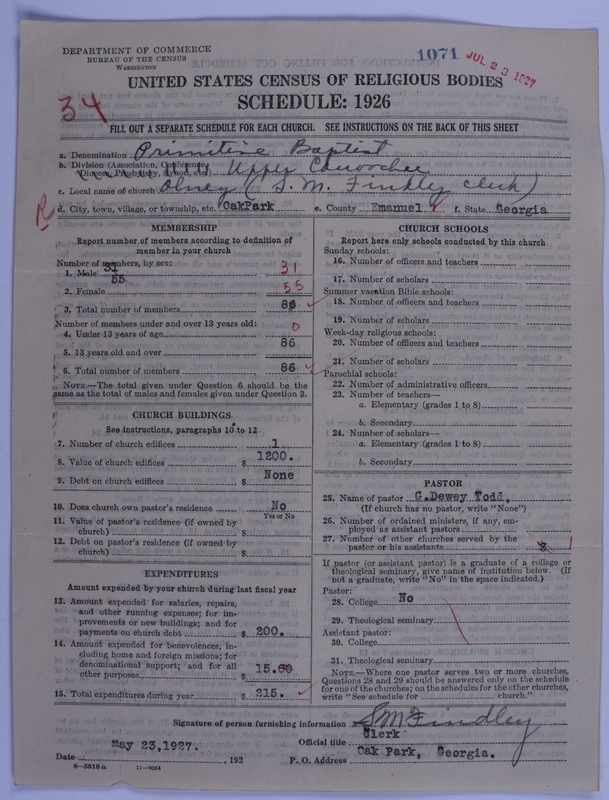 DEPARTMENT OF COMMERCE
BUREAU OF THE CENSUS
WASHINGTON
1071
JUL 23 1927
UNITED STATES CENSUS OF RELIGIOUS BODIES
SCHEDULE: 1926
34
FILL OUT A SEPARATE SCHEDULE FOR EACH CHURCH. SEE INSTRUCTIONS ON THE BACK OF THIS SHEET
a. Denomination Primitive Baptist
b. Division (Association, Conference, Diocese, Presbytery, Synod, etc.) Upper Canoochee
c. Local name of church Olney (S. M. Findley Clerk)
R
d. City, town, village, or township, etc. OakPark e. County Emanuel f. State Georgia
MEMBERSHIP
Report number of members according to definition of
member in your church
Number of members, by sex:
1. Male 31 31
55
2. Female 55
3. Total number of members 86
Number of members under and over 13 years old:
4. Under 13 years of age 0
5. 13 years old and over 86
6. Total number of members 86
NOTE.—The total given under Question 6 should be the
same as the total of males and females given under Question 3.
CHURCH BUILDINGS
See instructions, paragraphs 10 to 12
7. Number of church edifices 1
8. Value of church edifices $ 1200.
9. Debt on church edifices $ None
10. Does church own pastor's residence No
Yes or No
11. Value of pastor's residence (if owned by
church) $
12. Debt on pastor's residence (if owned by
church) $
EXPENDITURES
Amount expended by your church during last fiscal year
13. Amount expended for salaries, repairs,
and other running expenses; for im-
provements or new buildings; and for
payments on church debt $ 200.
14. Amount expended for benevolences, in-
cluding home and foreign missions; for
denominational support; and for all
other purposes $ 15.00
15. Total expenditures during year $ 215.
CHURCH SCHOOLS
Report here only schools conducted by this church
Sunday schools:
16. Number of officers and teachers
17. Number of scholars
Summer vacation Bible schools:
18. Number of officers and teachers
19. Number of scholars
Week-day religious schools:
20. Number of officers and teachers
21. Number of scholars
Parochial schools:
22. Number of administrative officers
23. Number of teachers—
a. Elementary (grades 1 to 8)
b. Secondary
24. Number of scholars—
a. Elementary (grades 1 to 8)
b. Secondary
PASTOR
25. Name of pastor G.Dewey Todd,
(If church has no pastor, write "None")
26. Number of ordained ministers, if any, em-
ployed as assistant pastors
27. Number of other churches served by the
pastor or his assistants 1
If pastor (or assistant pastor) is a graduate of a college or
theological seminary, give name of institution below. (If
not a graduate, write "No" in the space indicated.)
Pastor:
28. College No
29. Theological seminary
Assistant pastor:
30. College
31. Theological seminary
NOTE.—Where one pastor serves two or more churches,
Questions 28 and 29 should be answered only on the schedule
for one of the churches; on the schedules for the other churches,
write "See schedule for church."
Signature of person furnishing information S M Findley
Official title Clerk
Date May 23,1927. , 192 P. O. Address Oak Park, Georgia.
8—5318 a 11—9064